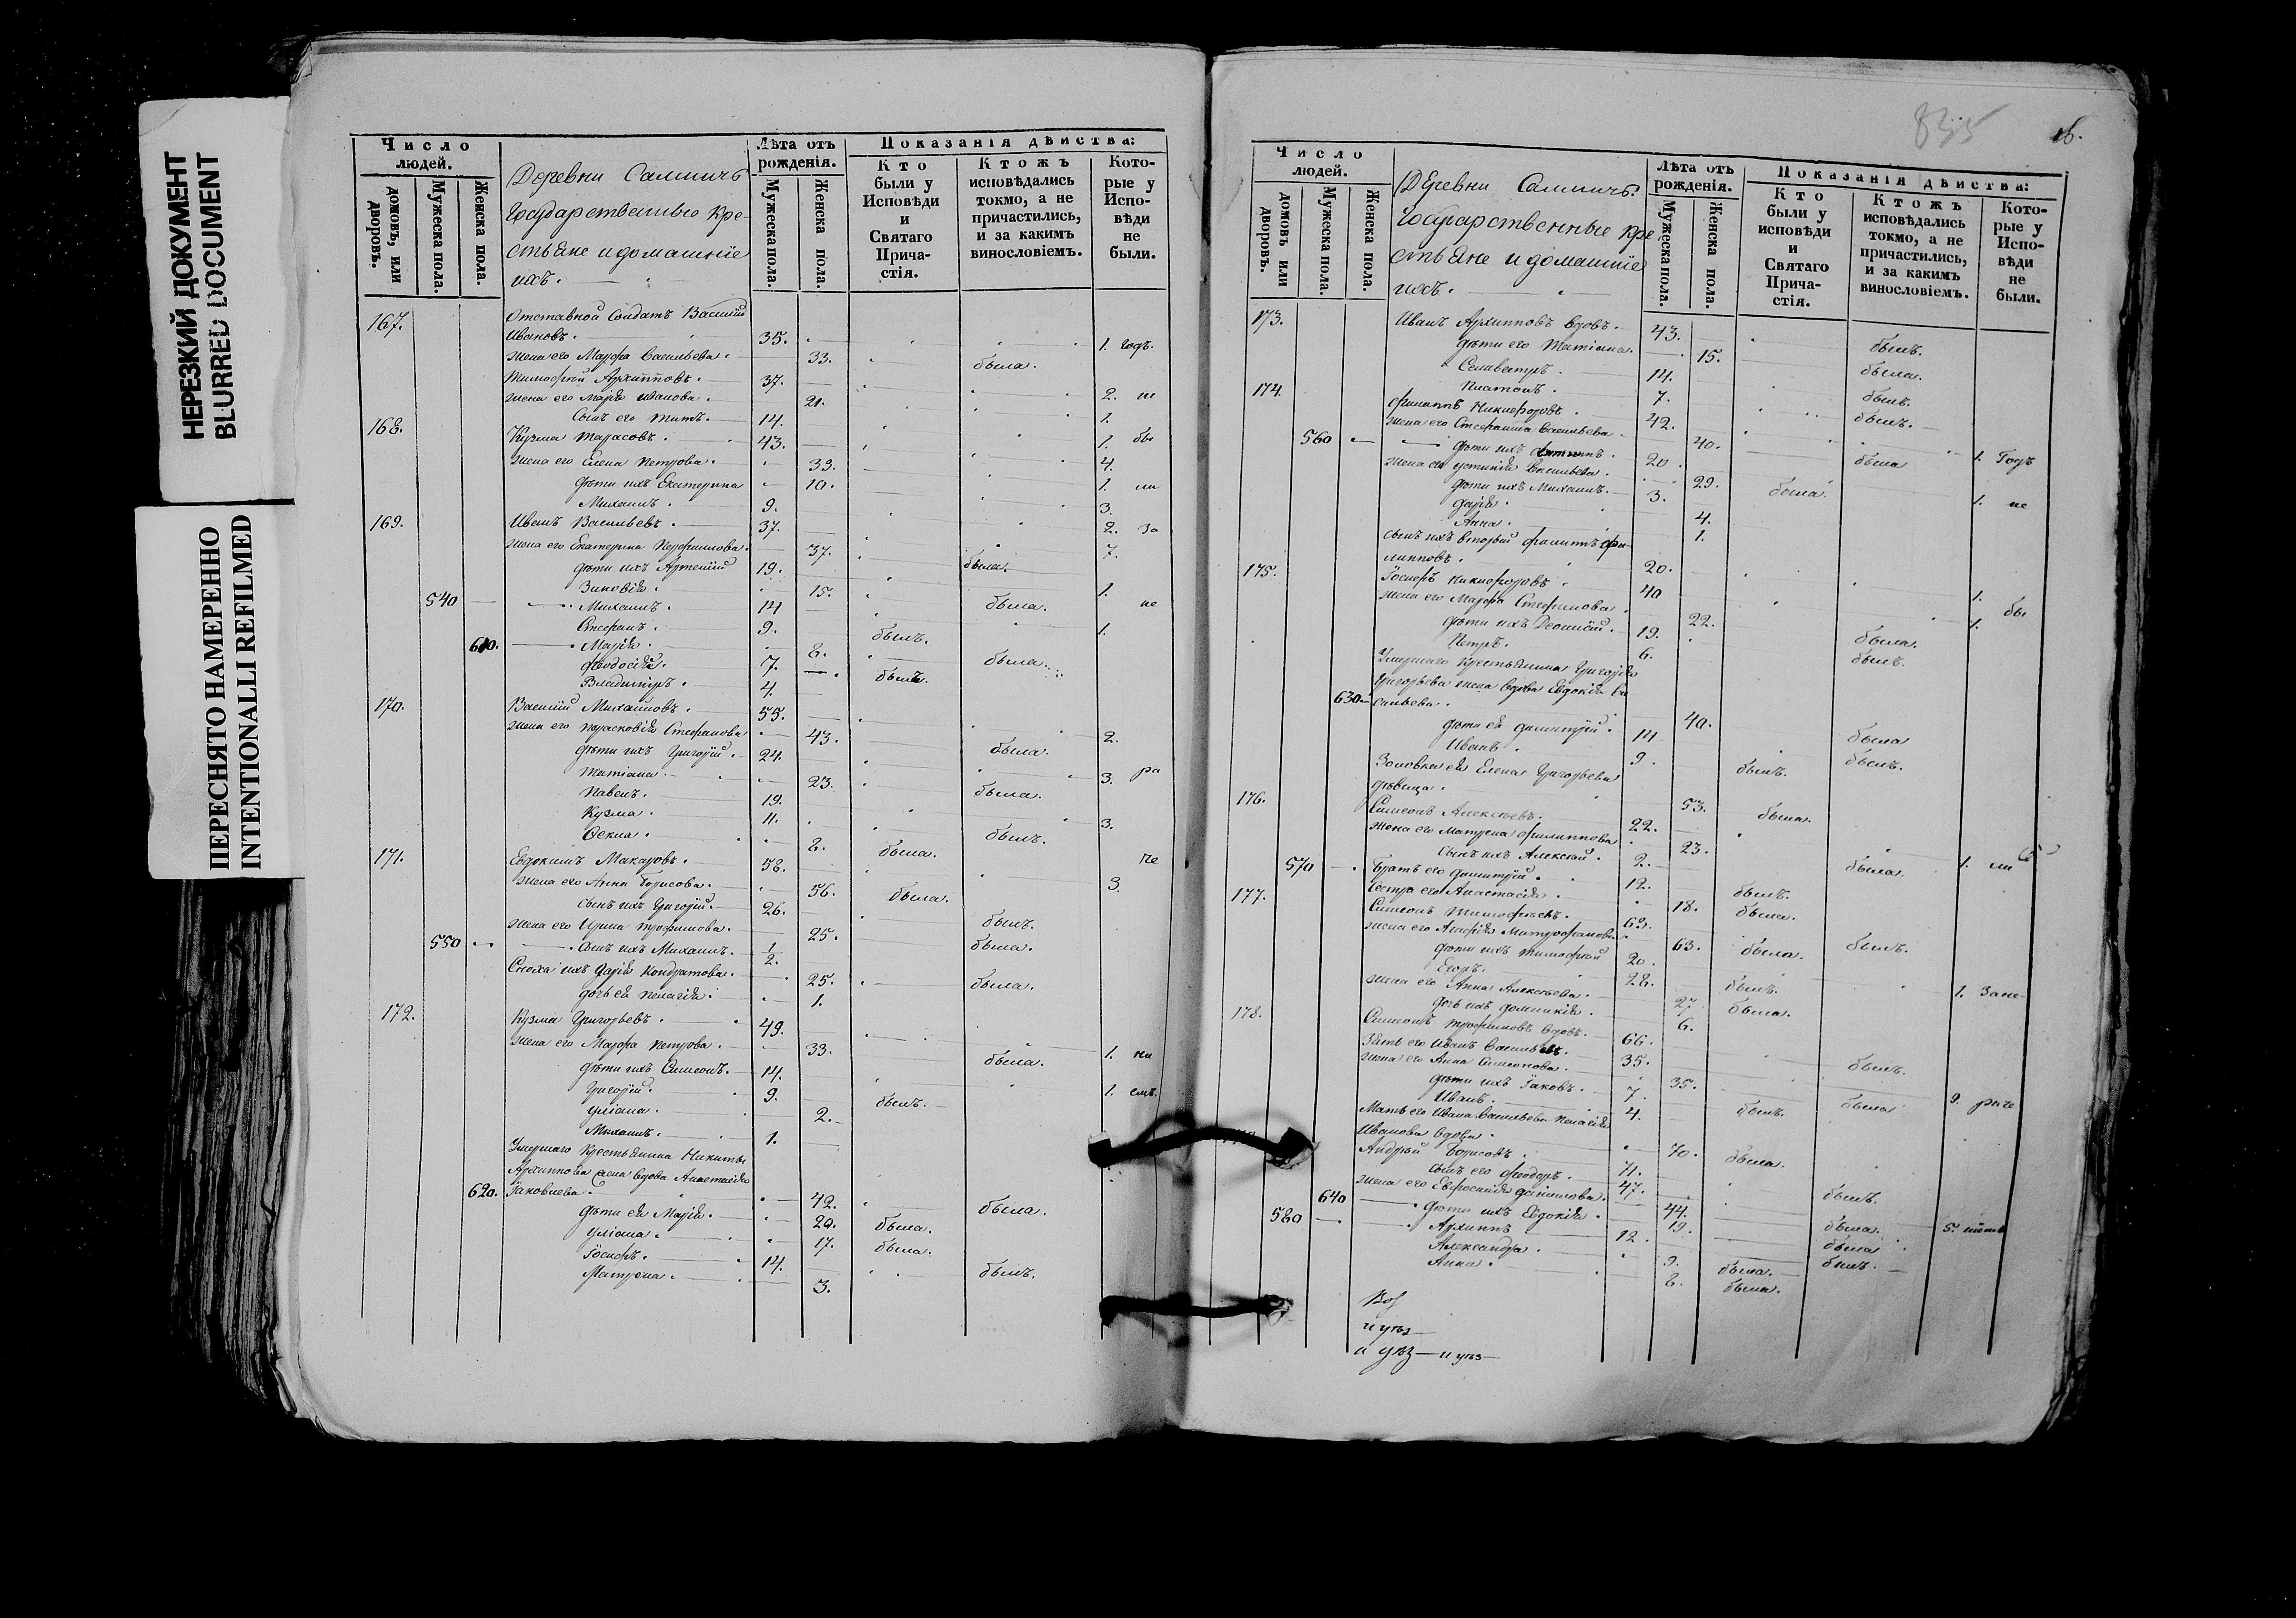 НЕРЕЗКИЙ ДОКУМЕНТ
BLURRED DOCUMENT
ПЕРЕСНЯТО НАМЕРЕННО
INTENTIONALLI REFILMED
Число людей.
домовъ, или дворовъ.
Мужеска пола.
Женска пола.
Деревни
Государственные Кре-
стьяне и домашніе
ихъ.
Лѣта отъ рожденія.
Мужеска пола.
Женска пола.
Показанія дѣйства:
Кто были у Исповѣди и Святаго Причастія.
Ктожъ исповѣдались токмо, а не причастились, и за какимъ винословіемъ.
Которые у Исповѣди не были.
167. Отставной Солдатъ Василій
Ивановъ. 35. 1. годъ.
жена его Марфа Васильева. 33. была.
Тимофей Архипповъ. 37.
жена его Марія Иванова. 21. 2. не
Сынъ его Титъ. 14. 1.
168. Кузма Тарасовъ. 43. 1. бы
жена его Елена Петрова. 33. 4.
дѣти ихъ Екатерина 10. 1. ли
Михаилъ. 9. 3.
169. Иванъ Васильевъ. 37. 2. за
жена его Екатерина 37. 7.
дѣти ихъ Артемій 19. была.
Зиновія. 15. 1.
540 Михаилъ. 14 была. не
Стефанъ. 9. былъ. 1.
610. Марія. 8. была.
Феодосія. 7. была.
Владиміръ. 4.
170. Василій Михайловъ. 55.
жена его Парасковія Стефанова 43. 2.
дѣти ихъ Григорій. 24. была.
Татіана. 23. 3. ра
Павелъ. 19. была.
Кузма. 11. 3.
Фекла. 8. была. былъ.
171. Евдокимъ Макаровъ. 58. че
жена его Анна Борисова. 56. была. 3.
сынъ ихъ Григорій. 26.
жена его Ирина Трофимова. 25. былъ.
550 Сынъ ихъ Михаилъ. 1/2. была.
Сноха ихъ Дарія Кондратова. 25. была.
дочь ея Пелагія. 1.
172. Кузма Григорьевъ. 49.
жена его Марфа Петрова. 33. 1. ни
дѣти ихъ Симеонъ. 14. была.
Григорій. 9. 1. емъ.
Уліана. 2. былъ.
Михаилъ. 1.
Умершаго Крестьянина Никиты
Архиппова жена вдова Анастасія
620. Іаковлева. 42.
дѣти ея Марія. 20. была. была.
Уліана. 17. была.
Іосифъ. 14.
Матрена. 3. былъ.
835
16.
Число людей.
домовъ или дворовъ.
Мужеска пола.
Женска пола.
Деревни
Государственные Кре-
стьяне и домашніе
ихъ.
Лѣта отъ рожденія.
Мужеска пола.
Женска пола.
Показанія дѣйства:
Кто были у исповѣди и Святаго Причастія.
Ктожъ исповѣдались токмо, а не причастились, и за какимъ винословіемъ.
Которые у Исповѣди не были.
173. Иванъ Архипповъ вдовъ. 43.
дѣти его Татіана. 15. былъ.
Селиверстръ. 14. была.
Платонъ. 7. былъ.
174. Филиппъ Никифоровъ. 42. былъ.
жена его Стефанида Васильева 40.
560 дѣти ихъ 20. была 1. Годъ
жена его Устинія Васильева. 29. была.
дѣти ихъ Михаилъ. 3. 1. не
Дарія. 4.
Анна. 1.
сынъ ихъ вторый Филиппъ Фи-
липповъ. 20.
175. Іосифъ Никифоровъ. 40 1.
жена его Марфа Стефанова. 22. 1. бы
дѣти ихъ Діонисій. 19. была.
Петръ. 6. былъ.
Умершаго Крестьянина Григорія
Григорьева жена вдова Евдокія Ва
630 сильева. 40.
дѣти ея Димитрій. 14 была
Иванъ. 9. былъ. былъ.
Золовка ея Елена Григорьева
дѣвица. 53. была.
176. Симеонъ Алексѣевъ. 22.
жена его Матрена Филиппова 23.
сынъ ихъ Алексѣй. 2. была. 1. ли
570 Братъ его Димитрій. 12. былъ.
Сестра его Анастасія. 18. была.
177. Симеонъ Тимофѣевъ. 63. былъ.
жена его Агафія Митрофанова 63. была.
дѣти ихъ Тимофей 20.
Егоръ. 28. былъ.
жена его Анна Алексѣева. 27. была. 1. Зане-
дочь ихъ Домникія. 6.
178. Симеонъ Трофимовъ вдовъ. 66.
Зять его Иванъ Васильевъ. 35. былъ.
жена его Анна Симеонова. 35.
дѣти ихъ Іаковъ. 7. былъ. была. 9. раче
Иванъ. 4.
Мать его Ивана Васильева Пелагія
Иванова вдова. 70. была.
Андрей Борисовъ. 71.
сынъ его Феодоръ. 47. былъ.
жена его Евфросинія Данилова. 44.
640 дѣти ихъ Евдокія. 19. была. 5.
580 Архиппъ 12. была
Александра. 9. была. былъ.
Анна. 8. была.